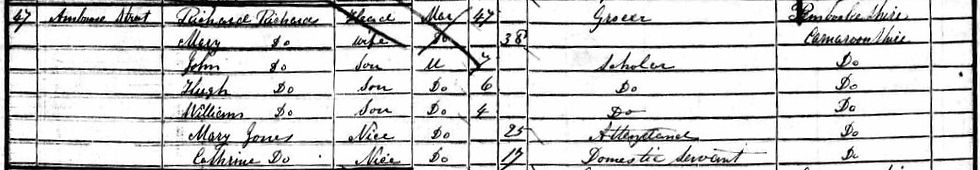 47 Ambrose Street Richard Richards Head Mar 47 Grocer Pembroke Shire
Mary Do Wife Do 38 Carnarvon Shire
John Do Son U Scholar Do
Hugh Do Son Do 6 Do Do
William Do Son Do 4 Do Do
Mary Jones Nice Do 25 Do
Cathrine Do Nice Do 17 Domestic Servant Do